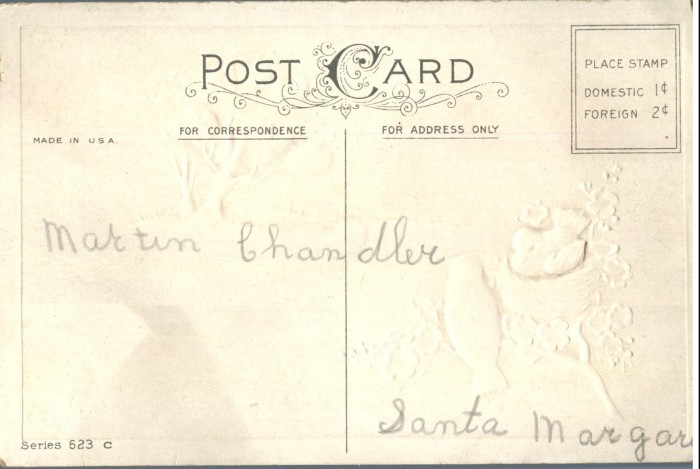 POST CARD
PLACE STAMP
DOMESTIC 1¢
FOREIGN 2¢
FOR CORRESPONDENCE
FOR ADDRESS ONLY
MADE IN U.S.A.
Martin Chandler
Santa Margar
Series 623 C